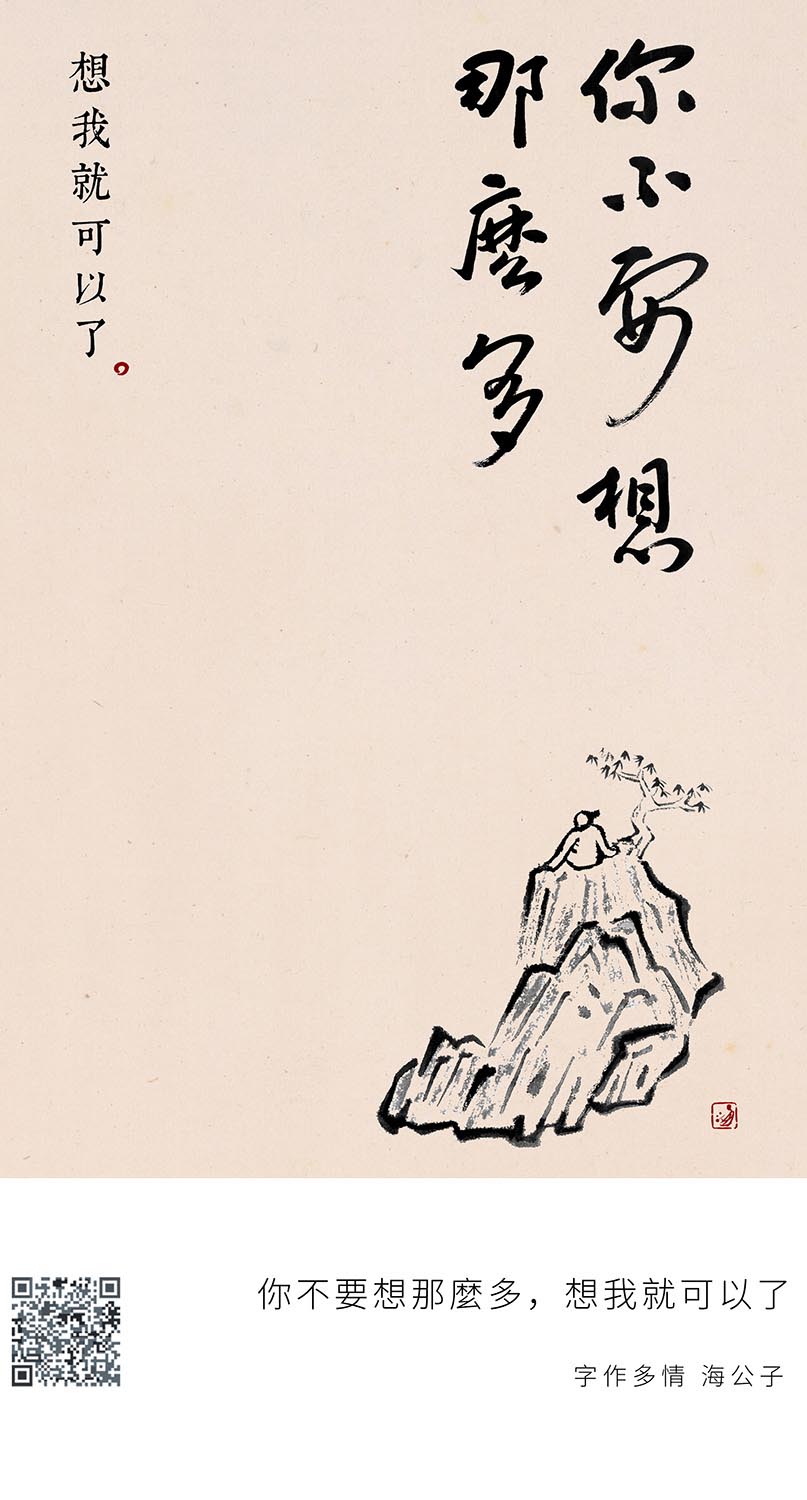 你不要想
那麼多
想我就可以了。
你不要想那麼多，想我就可以了
字作多情 海公子